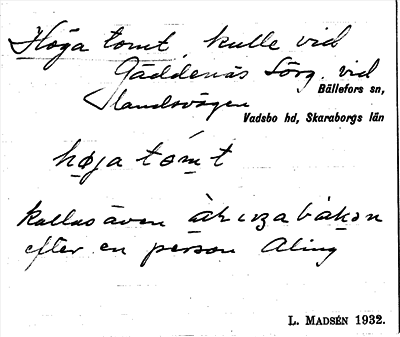 Höga tomt, kulle vid
Gäddenäs Törg. vid
Bällefors sn,
landsvägen
Vadsbo hd, Skaraborgs län
høja tòmt
kallas även
efter en person Aling
L. MADSÉN 1932.